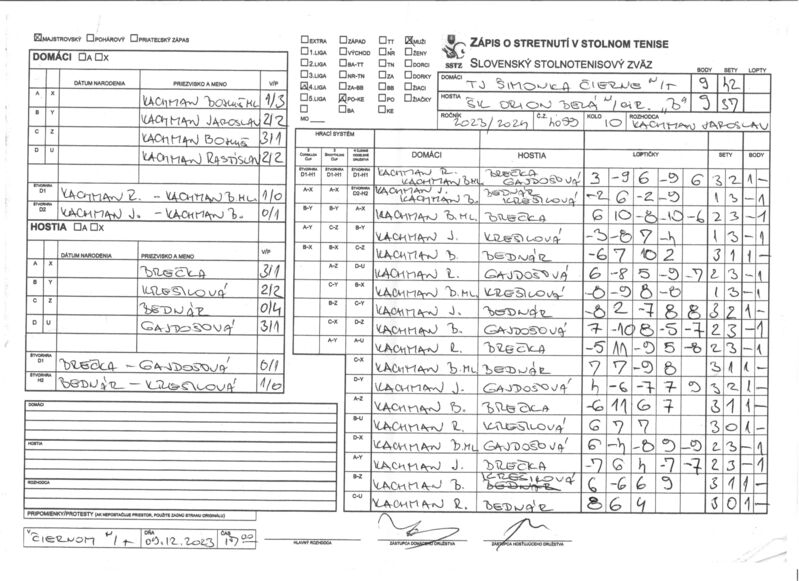 MAJSTROVSKÝ POHÁROVÝ PRIATEĽSKÝ ZÁPAS
DOMÁCI A X
DÁTUM NARODENIA PRIEZVISKO A MENO V/P
A X KACHMAN BOHUŠ ML 1/3
B Y KACHMAN JAROSLAV 2/2
C Z KACHMAN BOHUŠ 3/1
D U KACHMAN RASTISLAV 2/2
ŠTVORHRA D1 KACHMAN R. - KACHMAN B.ML 1/0
ŠTVORHRA D2 KACHMAN J. - KACHMAN B. 0/1
HOSTIA A X
DÁTUM NARODENIA PRIEZVISKO A MENO V/P
A X BREČKA 3/1
B Y KREŠILOVÁ 2/2
C Z BEDNÁR 0/4
D U GAJDOŠOVÁ 3/1
ŠTVORHRA BREČKA - GAJDOŠOVÁ 0/1
ŠTVORHRA H2 BEDNÁR - KREŠILOVÁ 1/0
DOMÁCI
HOSTIA
ROZHODCA
PRIPOMIENKY/PROTESTY (AK NEPOSTAČUJE PRIESTOR, POUŽITE ZADNÚ STRANU ORIGINÁLU)
V ČIERNOM N/T DŇA 09.12.2023 ČAS 17:00
EXTRA ZÁPAD TT MUŽI
1.LIGA VÝCHOD NR ŽENY
2.LIGA BA-TT TN DORCI
3.LIGA NR-TN ZA DORKY
4.LIGA ZA-BB BB ŽIACI
5.LIGA PO-KE PO ŽIAČKY
BA KE
MO
SSTZ
ZÁPIS O STRETNUTÍ V STOLNOM TENISE
SLOVENSKÝ STOLNOTENISOVÝ ZVÄZ
BODY SETY LOPTY
DOMÁCI TJ ŠIMONKA ČIERNE N/T 9 42
HOSTIA ŠK ORION BELÁ N/CIR. "B" 9 37
ROČNÍK 2023/2024 Č.Z. 4099 KOLO 10 ROZHODCA KACHMAN JAROSLAV
HRACÍ SYSTÉM
DOMÁCI HOSTIA LOPTIČKY SETY BODY
ŠTVORHRA D1-H1 ŠTVORHRA D1-H1 ŠTVORHRA D1-H1 KACHMAN R. KACHMAN B.ML BREČKA GAJDOŠOVÁ 3 -9 6 -9 6 3 2 1 -
A-X A-X ŠTVORHRA D2-H2 KACHMAN J. KACHMAN B. BEDNÁR KREŠILOVÁ -2 6 -2 -9 1 3 - 1
B-Y B-Y A-X KACHMAN B.ML BREČKA 6 10 -8 -10 -6 2 3 - 1
A-Y C-Z B-Y KACHMAN J. KREŠILOVÁ -3 -8 7 -4 1 3 - 1
B-X B-X C-Z KACHMAN B. BEDNÁR -6 7 10 2 3 1 1 -
A-Z D-U KACHMAN R. GAJDOŠOVÁ 6 -8 5 -9 -7 2 3 - 1
C-Y B-X KACHMAN B.ML KREŠILOVÁ -8 -9 8 -8 1 3 - 1
B-Z C-Y KACHMAN J. BEDNÁR -8 2 -7 8 8 3 2 1 -
C-X D-Z KACHMAN B. GAJDOŠOVÁ 7 -10 8 -5 -7 2 3 - 1
A-Y A-U KACHMAN R. BREČKA -5 11 -9 5 -8 2 3 - 1
C-X KACHMAN B.ML BEDNÁR 7 7 -9 8 3 1 1 -
D-Y KACHMAN J. GAJDOŠOVÁ 4 -6 -7 7 9 3 2 1 -
A-Z KACHMAN B. BREČKA -6 11 6 7 3 1 1 -
B-U KACHMAN R. KREŠILOVÁ 6 7 7 3 0 1 -
D-X KACHMAN B.ML GAJDOŠOVÁ 6 -4 -8 9 -9 2 3 - 1
A-Y KACHMAN J. BREČKA -7 6 4 -7 -7 2 3 - 1
B-Z KACHMAN B. KREŠILOVÁ BEDNÁR 6 -6 6 9 3 1 1 -
C-U KACHMAN R. BEDNÁR 8 6 4 3 0 1 -
HLAVNÝ ROZHODCA ZÁSTUPCA DOMÁCEHO DRUŽSTVA ZÁSTUPCA HOSŤUJÚCEHO DRUŽSTVA